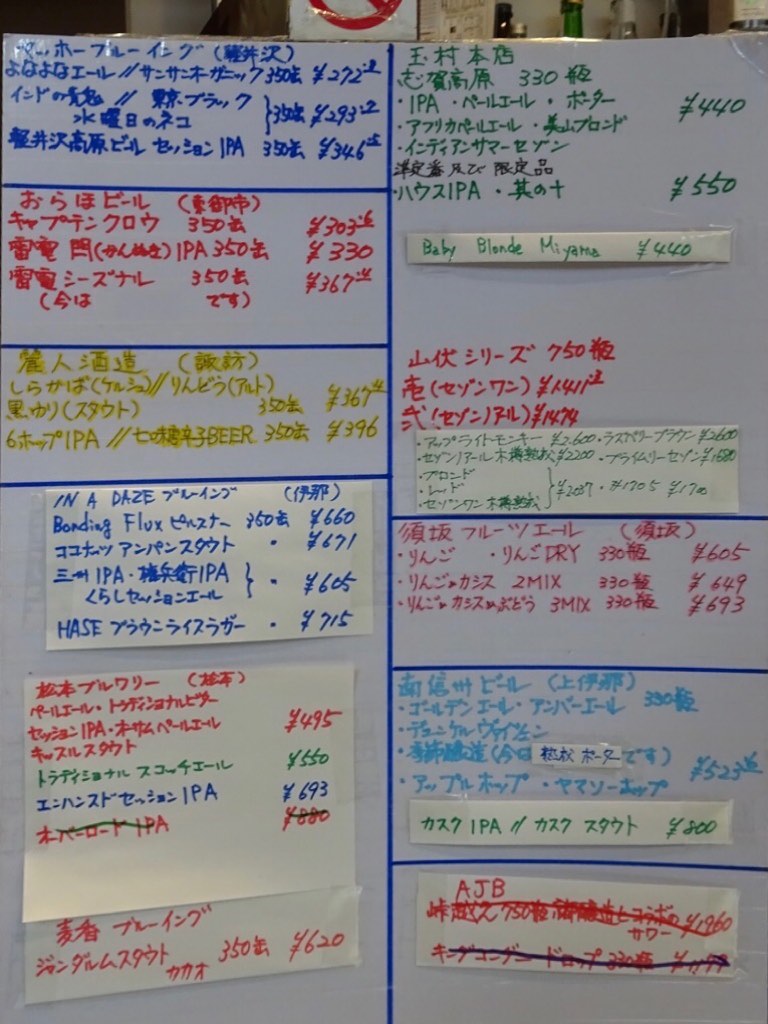 ヤッホーブルーイング (軽井沢)
よなよなエール // サンサンオーガニック 350缶 ¥272
インドの青鬼 // 東京ブラック
水曜日のネコ 350缶 ¥293
軽井沢高原ビール セッションIPA 350缶 ¥346
おらほビール (東御市)
キャプテンクロウ 350缶 ¥303
雷電 閂(かんぬき)IPA 350缶 ¥330
雷電シーズナル 350缶 ¥367
(今は です)
麗人酒造 (諏訪)
しらかば(ケルシュ) // りんどう(アルト)
黒ゆり(スタウト) 350缶 ¥367
6ホップIPA // 七味唐辛子BEER 350缶 ¥396
IN A DAZE ブルーイング (伊那)
Bonding Flux ピルスナー 350缶 ¥660
ココナッツ アンパンスタウト 〃 ¥671
三州IPA・権兵衛IPA
くらしセッションエール 〃 ¥605
HASE ブラウンライスラガー 〃 ¥715
松本ブルワリー (松本)
ペールエール・トラディショナルビター
セッションIPA・オーサムペールエール ¥495
キャッスルスタウト
トラディショナル スコッチエール ¥550
エンハンスドセッションIPA ¥693
オーバーロードIPA ¥880
麦香 ブルーイング
ジャンダルムスタウト 350缶 ¥620
カカオ
玉村本店
志賀高原 330瓶
・IPA ・ペールエール ・ポーター ¥440
・アフリカペールエール ・美山ブロンド
・インディアンサマーセゾン
準定番及び限定品
・ハウスIPA ・其の十 ¥550
Baby Blonde Miyama ¥440
山伏シリーズ 750瓶
壱(セゾンワン) ¥1411
弐(セゾンノアール) ¥1474
・アップライトモンキー ¥2,600 ・ラズベリーブラウン ¥2600
・セゾンノアール木樽熟成 ¥2200 ・プライムリーセゾン ¥1680
・ブロンド
・レッド ¥2037
・セゾンワン木樽熟成
須坂フルーツエール (須坂)
・りんご ・りんごDRY 330瓶 ¥605
・りんご カシス 2MIX 330瓶 ¥649
・りんご カシス ぶどう 3MIX 330瓶 ¥693
南信州ビール (上伊那)
・ゴールデンエール・アンバーエール 330瓶
・デュンケルヴァイツェン
・季節醸造(今は ポーター です) ¥523
・アップルホップ ・ヤマソーホップ
カスクIPA // カスク スタウト ¥800
AJB
峠越え 750瓶 コラボの ¥1,960
サワー
キングコングニードロップ 330瓶